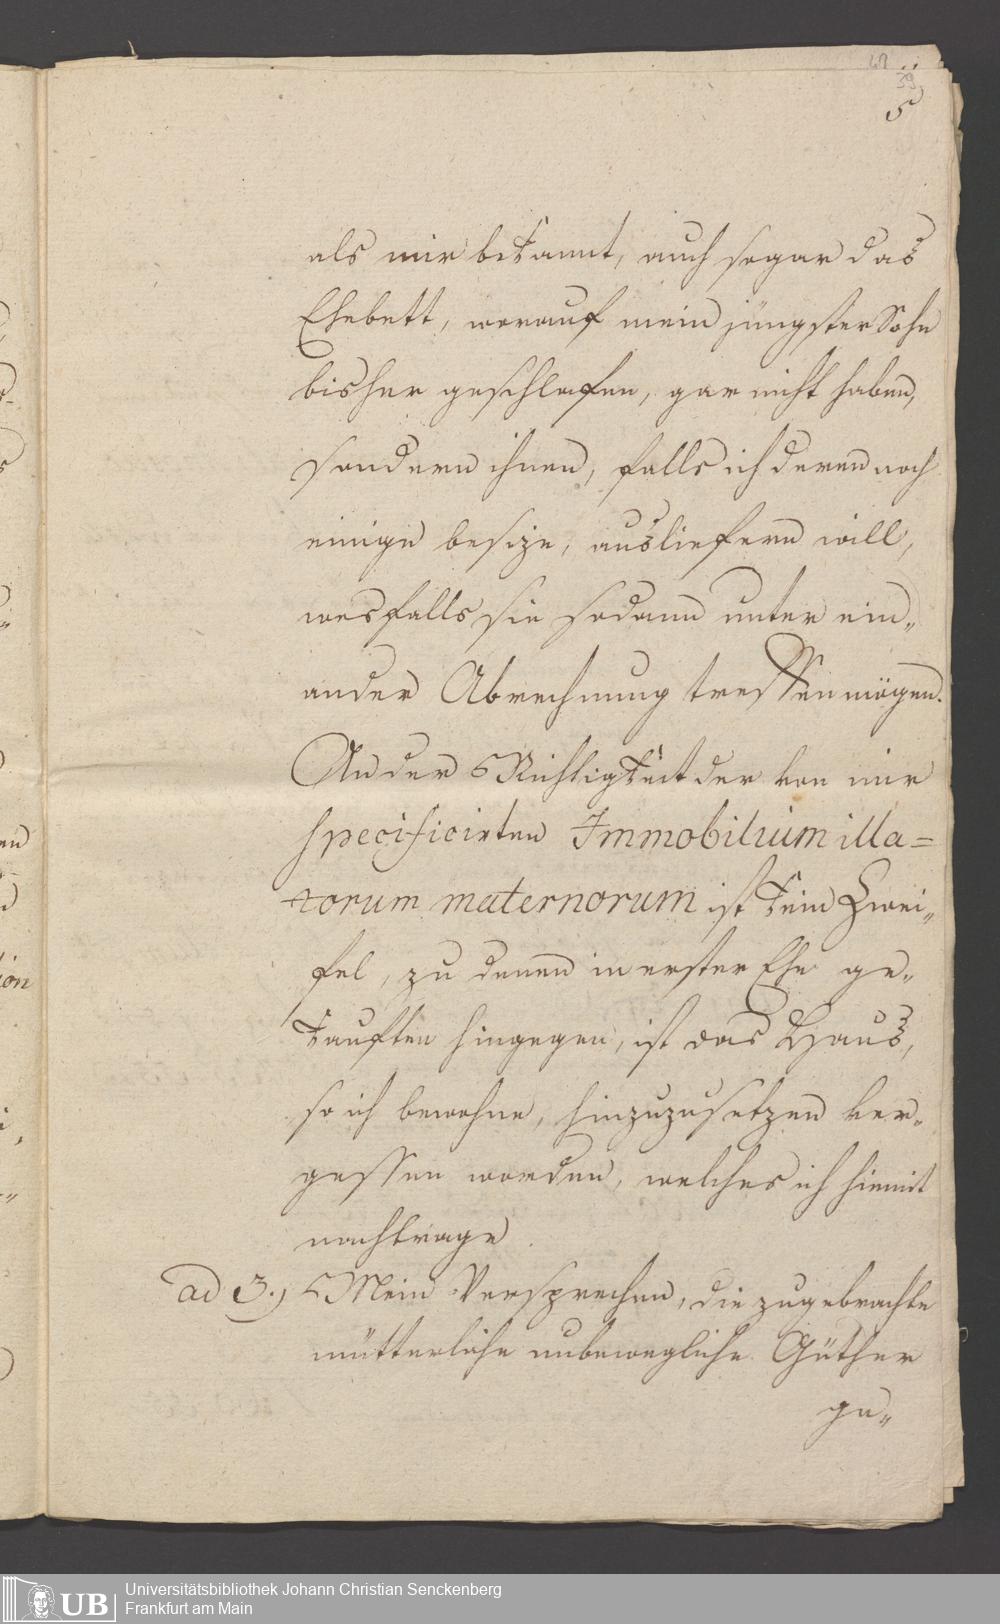 39
5
als mir bekannt, auch sogar das
Ehebett, worauf mein jüngster Sohn
bisher geschlafen, gar nicht haben,
sondern ihnen, falls ich deren noch
einige besize, ausliefern will,
wesfalls sie sodann unter ein„
ander Abrechnung treffen mögen.
An der Richtigkeit der von mir
specificirten Immobilium illa=
torum maternorum ist kein Zwei„
fel, zu denen in erster Ehe ge„
kauften hingegen, ist das Haus,
so ich bewohne, hinzuzusetzen ver„
gessen worden, welches ich hiemit
nachtrage
ad 3.) Mein Versprechen, die zugebrachte
mütterliche unbewegliche Güther
ge„
UB
Universitätsbibliothek Johann Christian Senckenberg
Frankfurt am Main